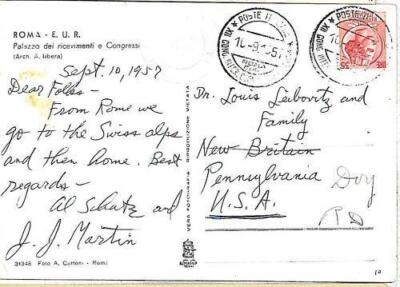 ROMA - E. U. R.
Palazzo dei ricevimenti e Congressi
(Arch. A. Libera)
Sept. 10, 1957
Dear Folks -
From Rome we
go to the Swiss alps
and then home. Best
regards -
Al Schatz and
J. J. Martin
31348 Foto A. Cartoni - Roma
VERA FOTOGRAFIA
RIPRODUZIONE VIETATA
POSTE
Dr. Louis Leibovitz and
Family
New Britain
Pennsylvania
U. S. A.
10